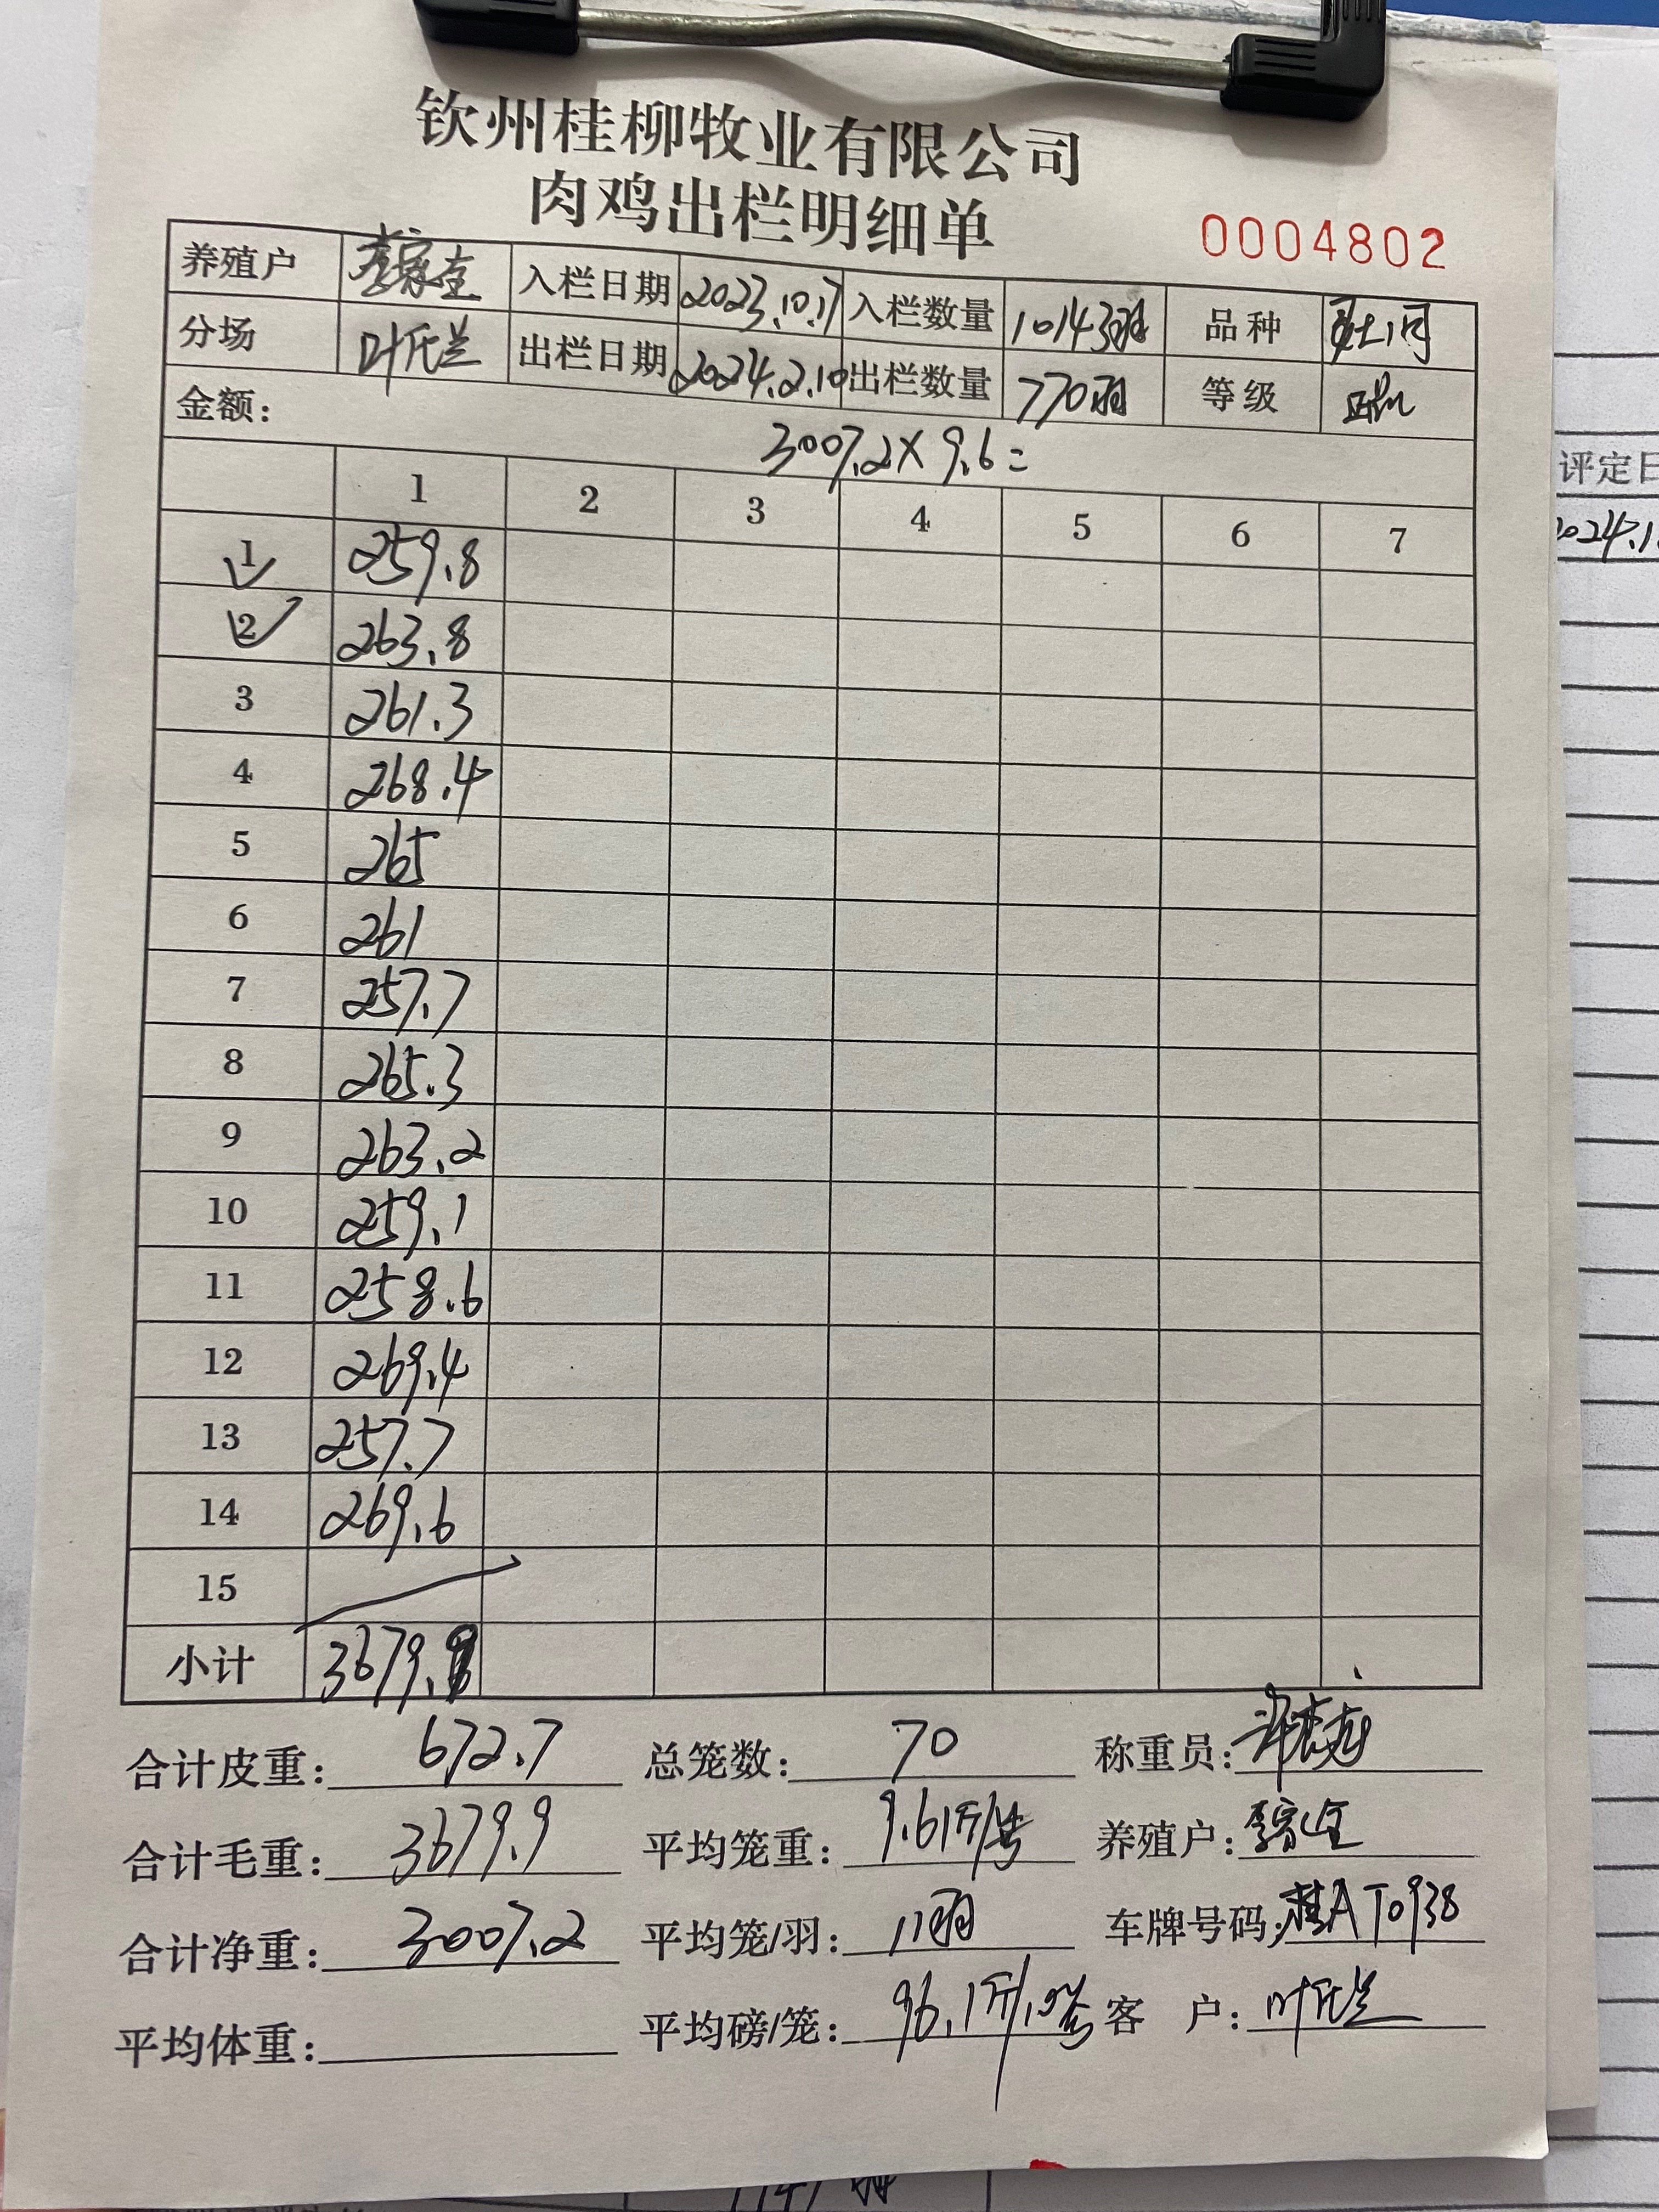 钦州桂柳牧业有限公司
肉鸡出栏明细单
0004802
养殖户 入栏日期 2023.10.17 入栏数量 10143羽 品种
分场 叶氏兰 出栏日期 2024.2.10 出栏数量 770羽 等级 正品
金额: 3007.2×9.6=
1 2 3 4 5 6 7
1 259.8
2 263.8
3 261.3
4 268.4
5 265
6 261
7 257.7
8 265.3
9 263.2
10 259.1
11 258.6
12 269.4
13 257.7
14 269.6
15
小计 3679.9
合计皮重: 672.7 总笼数: 70 称重员:
合计毛重: 3679.9 平均笼重: 9.61斤/ 养殖户:
合计净重: 3007.2 平均笼/羽: 11羽 车牌号码: 桂A T0938
平均体重: 平均磅/笼: 96.1斤/ 客 户: 叶氏兰
评定日
2024.1.